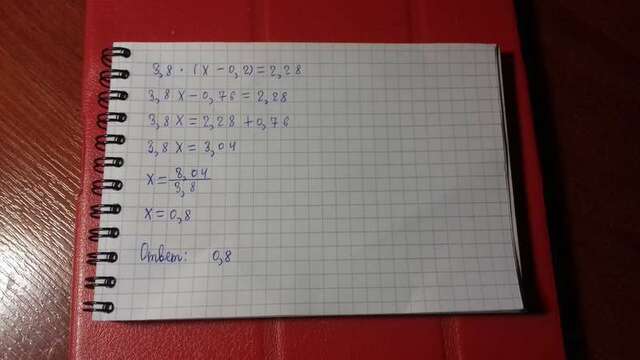 3,8 · (x - 0,2) = 2,28
3,8 x - 0,76 = 2,28
3,8 x = 2,28 + 0,76
3,8 x = 3,04
x = 3,04 / 3,8
x = 0,8
Ответ: 0,8